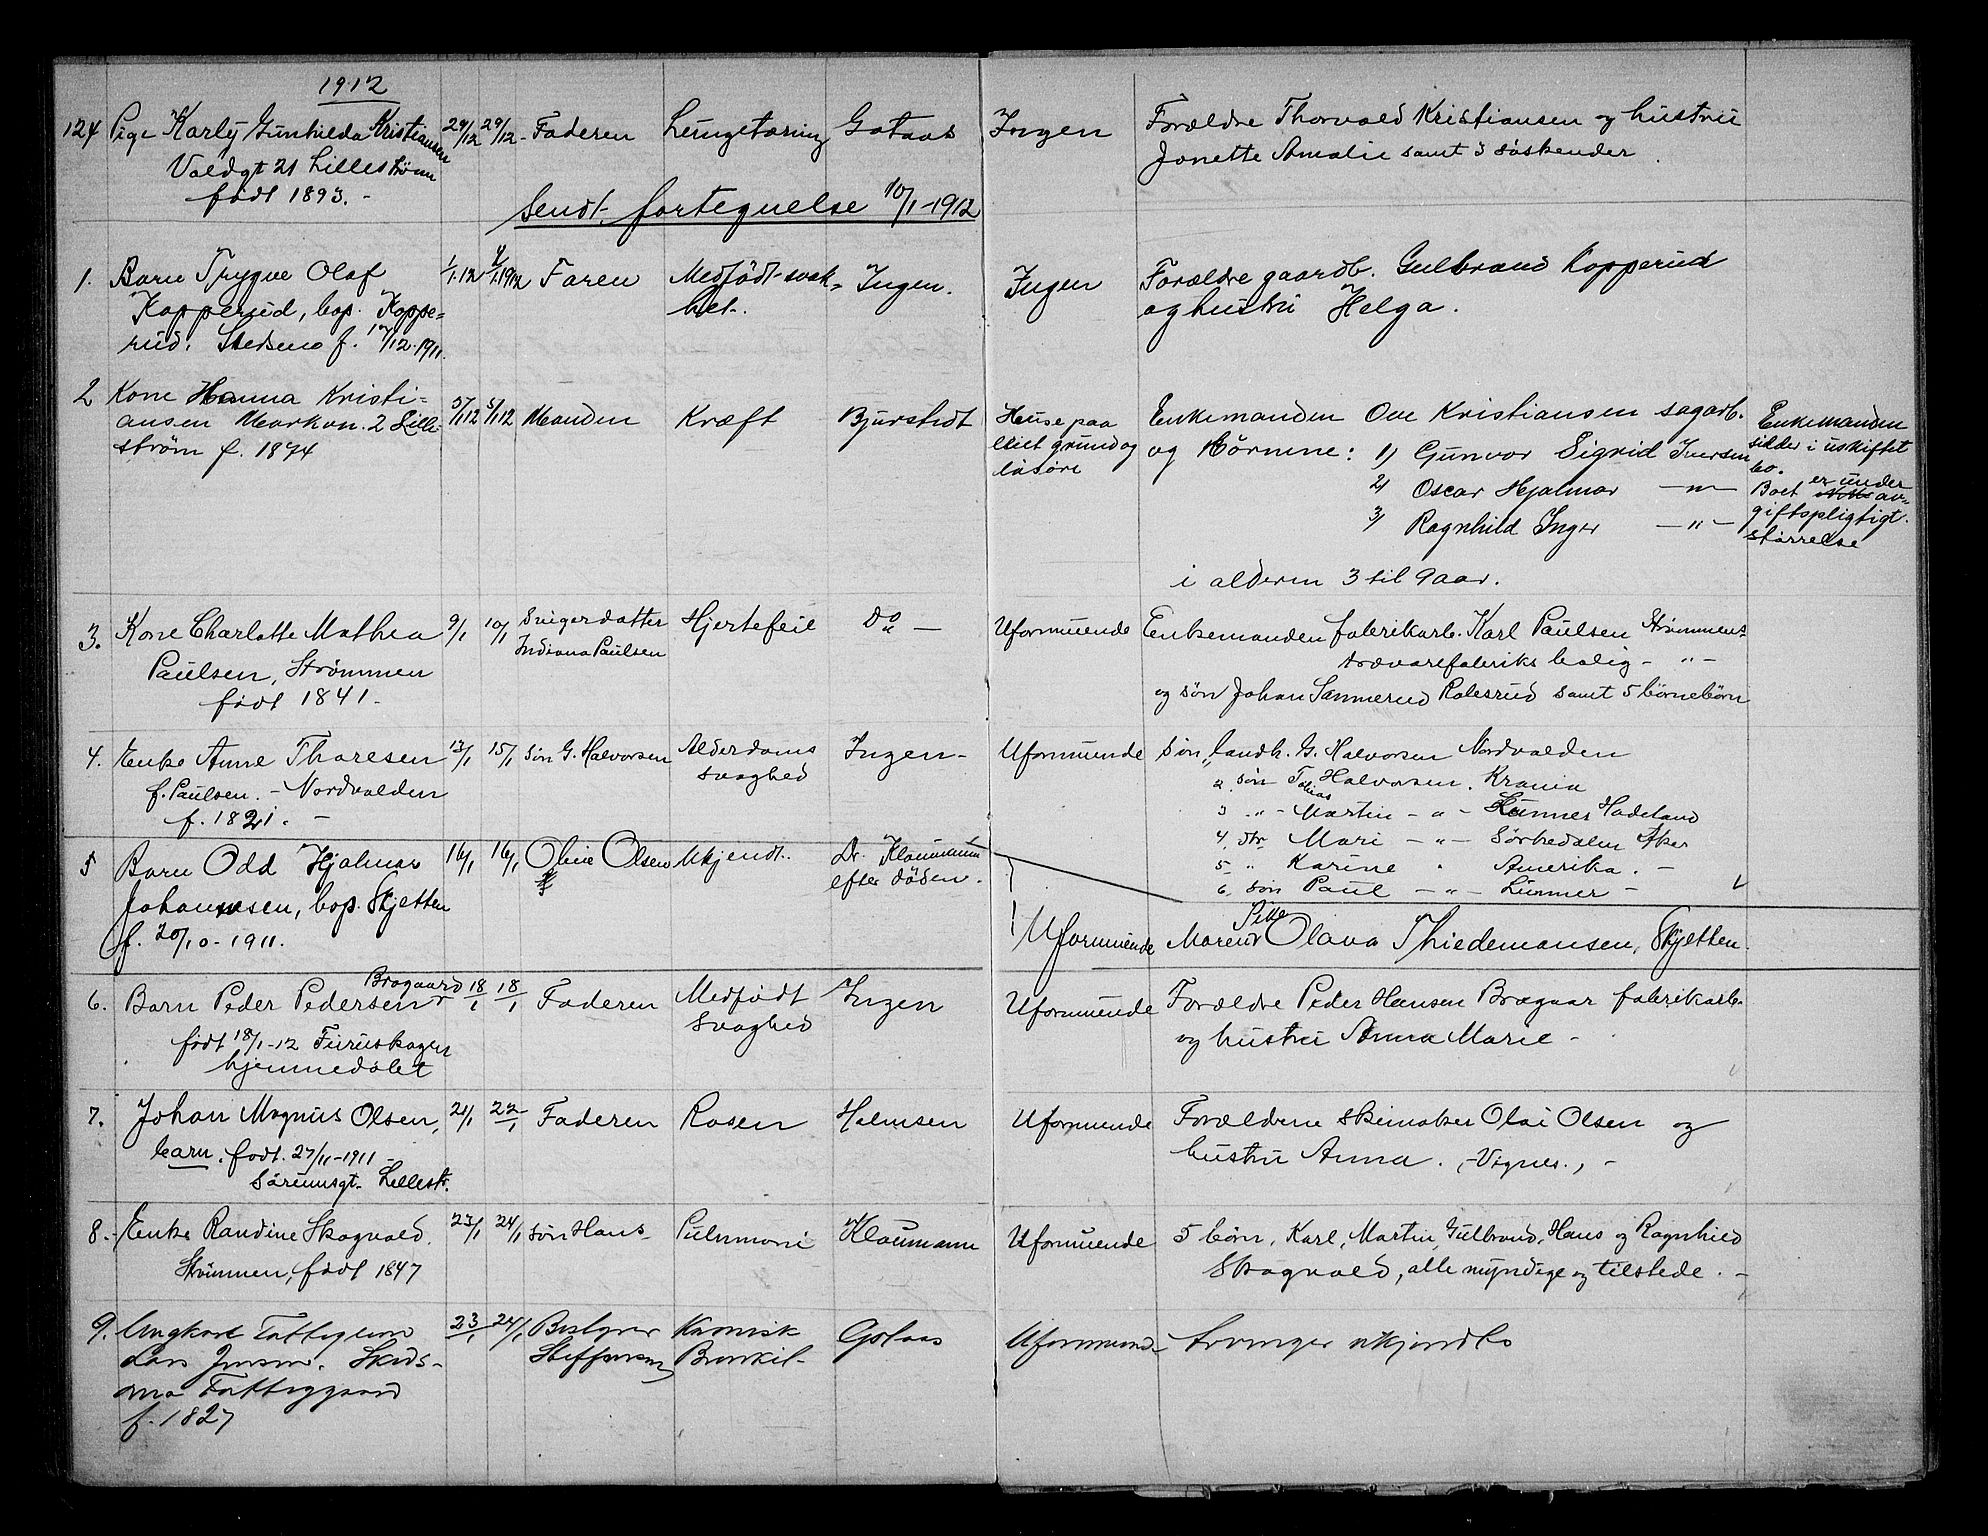 1912
124 Pige Karly Gunhilda Kristiansen 29/12 29/12 - Faderen Lungetæring Gotaas Ingen Forældre Thorvald Kristiansen og hustru
Voldgt 21 Lillestrøm Janette Amalie samt 3 søskender
født 1893. -
Sendt. fortegnelse 10/1-1912
1. Barn Trygve Olaf 1/1.12 4/1.1912 Faren Medfødt svak- Ingen. Ingen Forældre gaardb. Gulbrand Kopperud
Kopperud, bop. Koppe= het. og hustru Helga.
rud. Skedsmo f. 17/12.1911.
2 Kone Hanna Kristi= 5/1 12 5/1 12 Manden Kræft Bjurstedt Huse paa Enkemanden Ove Kristiansen sagarb. Enkemanden
ansen Markvn. 2 Lille- leiet grund og og Børnene: 1) Gunvor Sigrid Iversen sidder i uskiftet
strøm f. 1874 løsøre bo.
2) Oscar Hjalmar —"— Boet er under av-
3) Ragnhild Inger —"— giftspligtigt.
størrelse
i alderen 3 til 9 aar.
3. Kone Charlotte Mathea 9/1 10/1 Svigerdatter Hjertefeil Do — Uformuende Enkemanden fabrikarb. Karl Paulsen Strømmens
Indiana Paulsen
Paulsen, Strømmen trævarefabriks bolig - " -
født 1841 - og søn Johan Sannerud Rolesrud samt 5 børnebørn
4. Enke Anne Thoresen 13/1 15/1 Søn G. Halvorsen Alderdoms Ingen - Uformuende Søn, landh. G. Halvorsen Nordvolden
svaghed
f. Paulsen. - Nordvolden 2. søn Tobias Halvorsen. Krania
f. 1821. - 3 . " - Martin - " - Lunner Hadeland
4. dtr. Mari - " - Sørkedalen Aker
5 Barn Odd Hjalmar 16/1 16/1 Oline Olsen Ukjendt.. Dr. Klaumann 5. " Karine " Amerika . -
efter døden. 6. søn Paul - " - Lunner -
Johannesen, bop. Skjetten
f. 20/10-1911. Uformuende Moren Olava Thiedemansen, Skjetten.
6. Barn Peder Pedersen Bragaard 18/1 18/1 Faderen Medfødt Ingen Uformuende Forældre Peder Hansen Bragaar fabrikarb.
Svaghed
født 18/1-12 Furuskogen og hustru Anna Marie -
hjemmedøbt
7. Johan Magnus Olsen, 21/1 22/1 Faderen Rosen Holmsen Uformuende Forældrene Skomaker Olai Olsen og
barn. født. 27/11-1911 - hustru Anna. ,-Vignes., -
Sørumsgt. Lillestr.
8. - Enke Randine Skogvold. 23/1 24/1 søn Hans - Pulmmoni Klaumann Uformuende 5 børn, Karl, Martin, Gulbrand, Hans og Ragnhild
Strømmen, født 1847 Skogvold, alle myndige og tilstede. -
9. Ungkarl Fattiglem 23/1 24/1 Bestyrer Kronisk Gotaas Uformuend- Arvinger ukjendte
Lars Jensen. Skeds- Steffensen Bronkit-
mo Fattiggaard
f. 1827